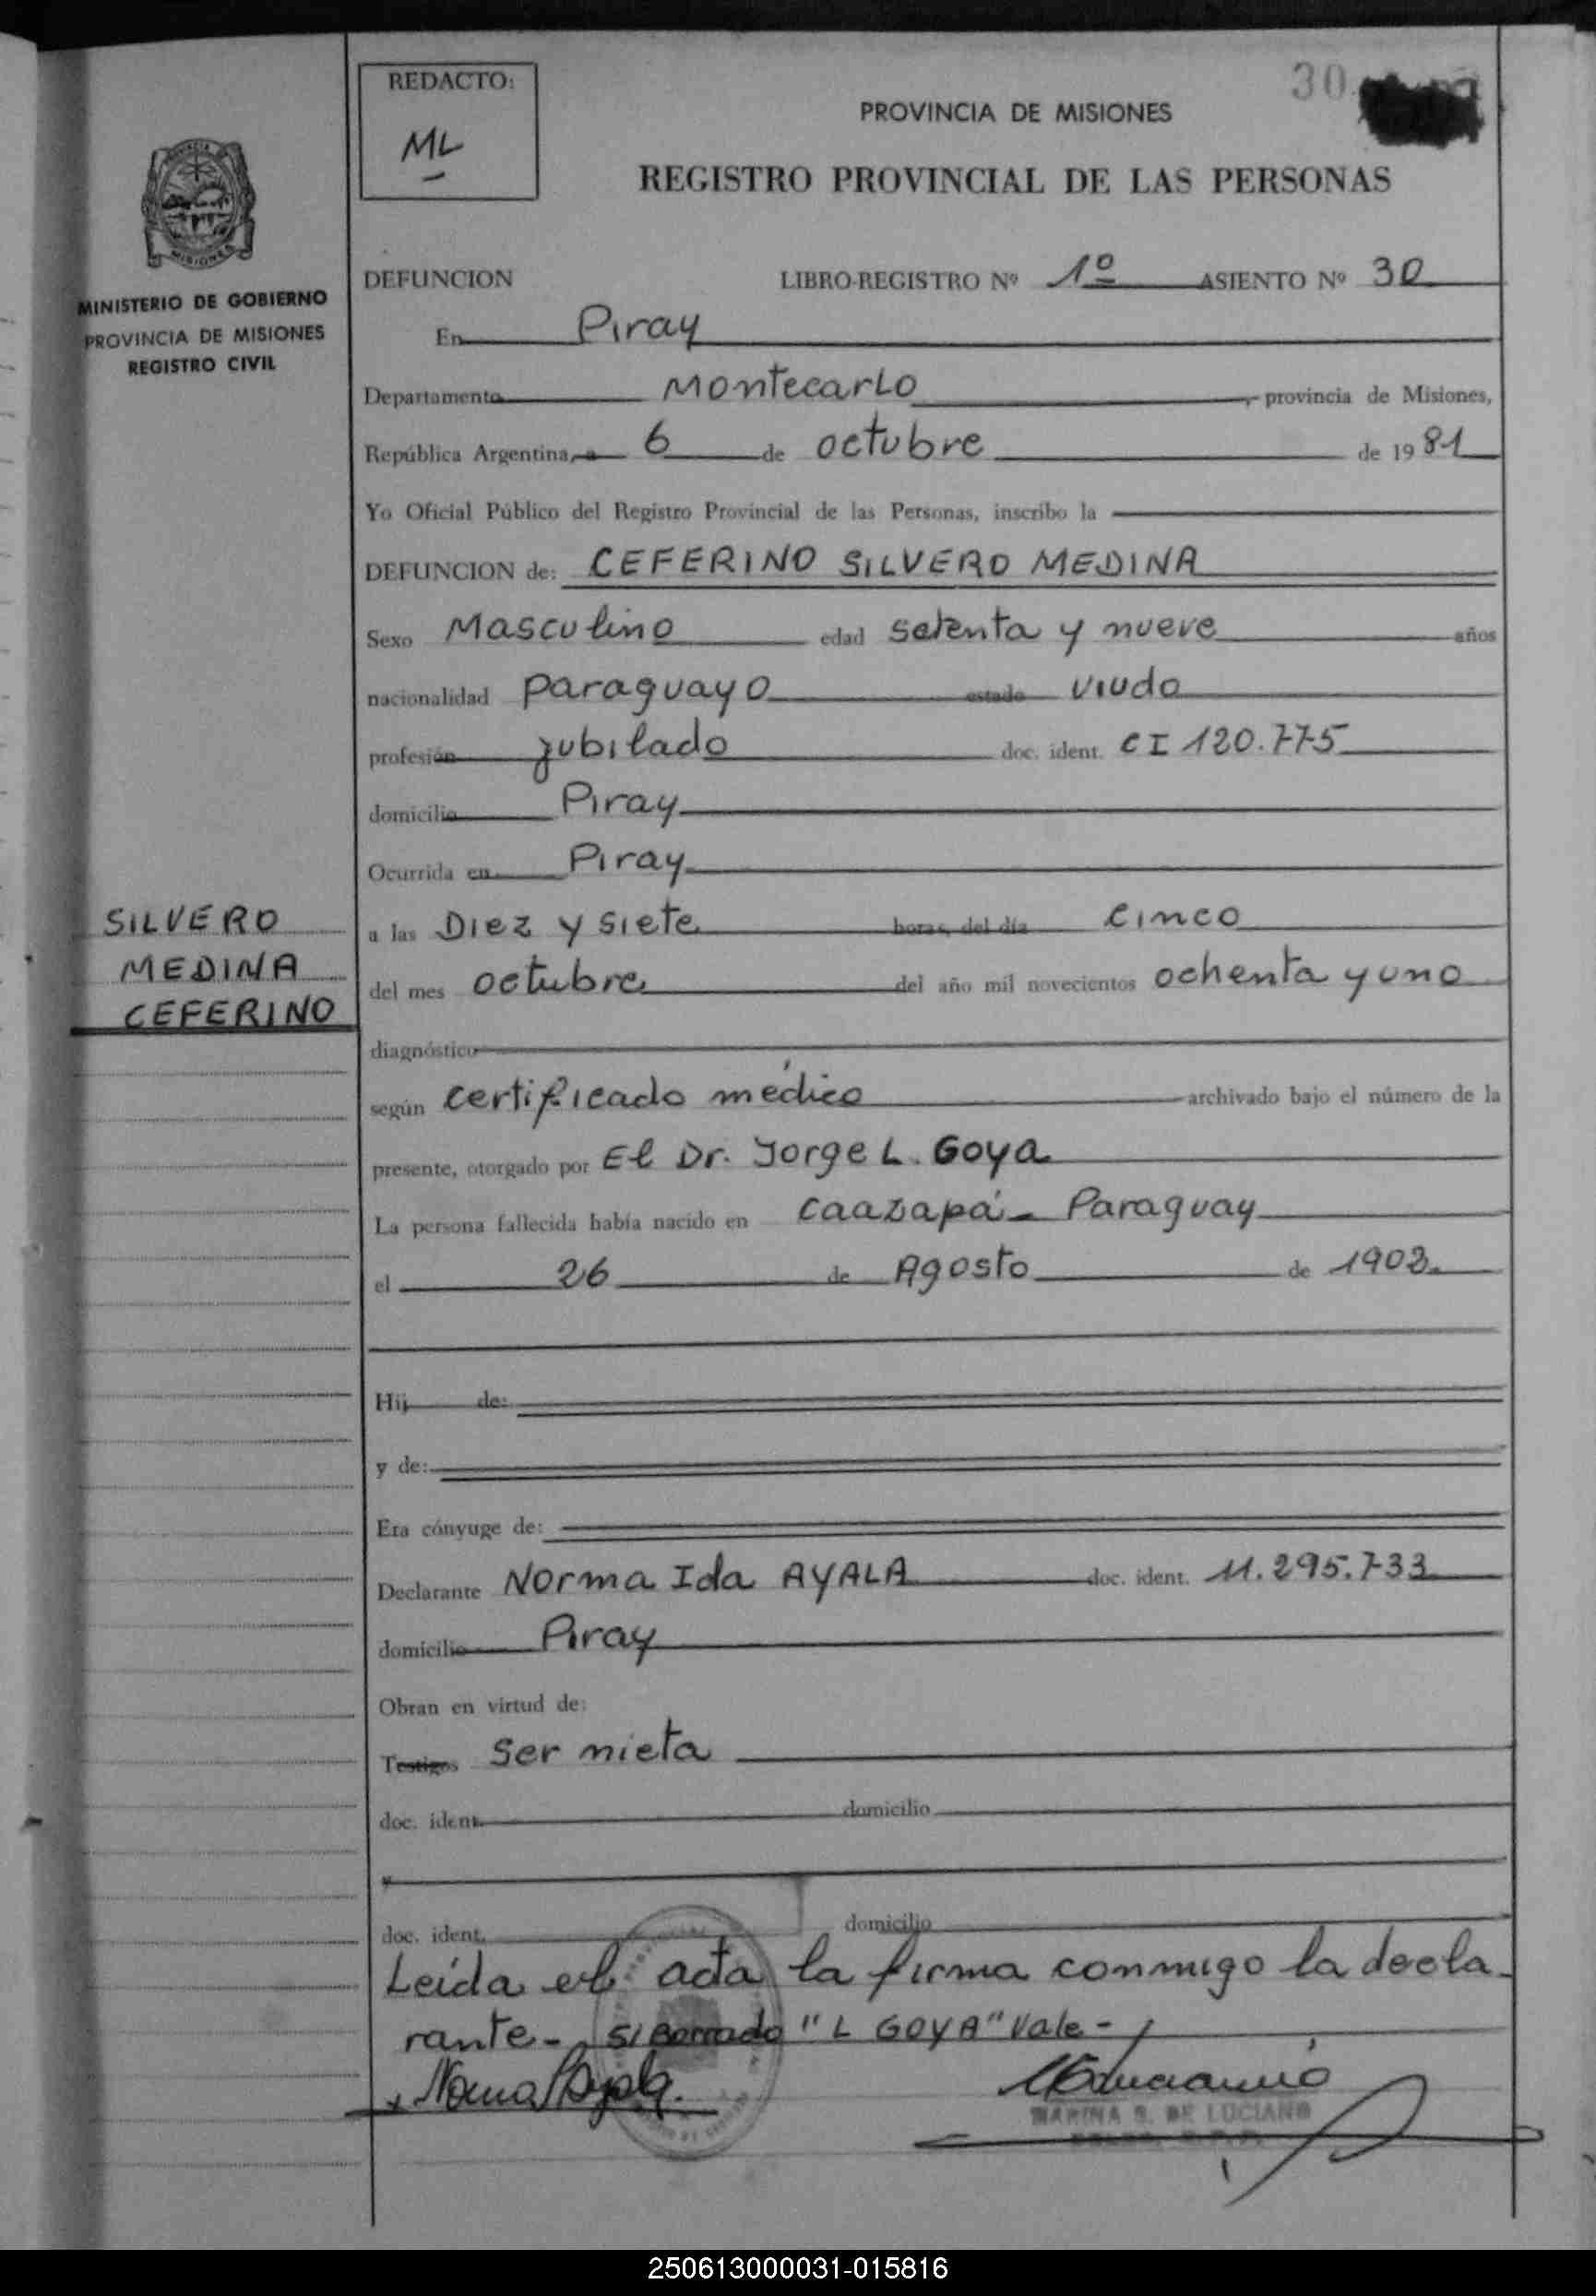 REDACTO:
ML
30
PROVINCIA DE MISIONES
REGISTRO PROVINCIAL DE LAS PERSONAS
MISIONES
MINISTERIO DE GOBIERNO
PROVINCIA DE MISIONES
REGISTRO CIVIL
DEFUNCION LIBRO-REGISTRO Nº 1º ASIENTO Nº 30
En Piray
Departamento Montecarlo, provincia de Misiones,
República Argentina, a 6 de octubre de 1981
Yo Oficial Público del Registro Provincial de las Personas, inscribo la
DEFUNCION de: CEFERINO SILVERO MEDINA
Sexo Masculino edad setenta y nueve años
nacionalidad paraguayo estado viudo
profesión jubilado doc. ident. CI 120.775
domicilio Piray
Ocurrida en Piray
SILVERO
MEDINA
CEFERINO
a las Diez y siete horas, del día cinco
del mes octubre del año mil novecientos ochenta y uno
diagnóstico
según certificado médico archivado bajo el número de la
presente, otorgado por El Dr. Jorge L. Goya
La persona fallecida había nacido en Caazapá - Paraguay
el 26 de Agosto de 1902
Hij de:
y de:
Era cónyuge de:
Declarante Norma Ida AYALA doc. ident. 11.295.733
domicilio Piray
Obran en virtud de:
Testigos ser nieta
doc. ident. domicilio
y
doc. ident. domicilio
Leída el acta la firma conmigo la decla
rante - S/ Borrado "L GOYA" Vale -
Norma Ayala
MARINA S. DE LUCIANO
250613000031-015816